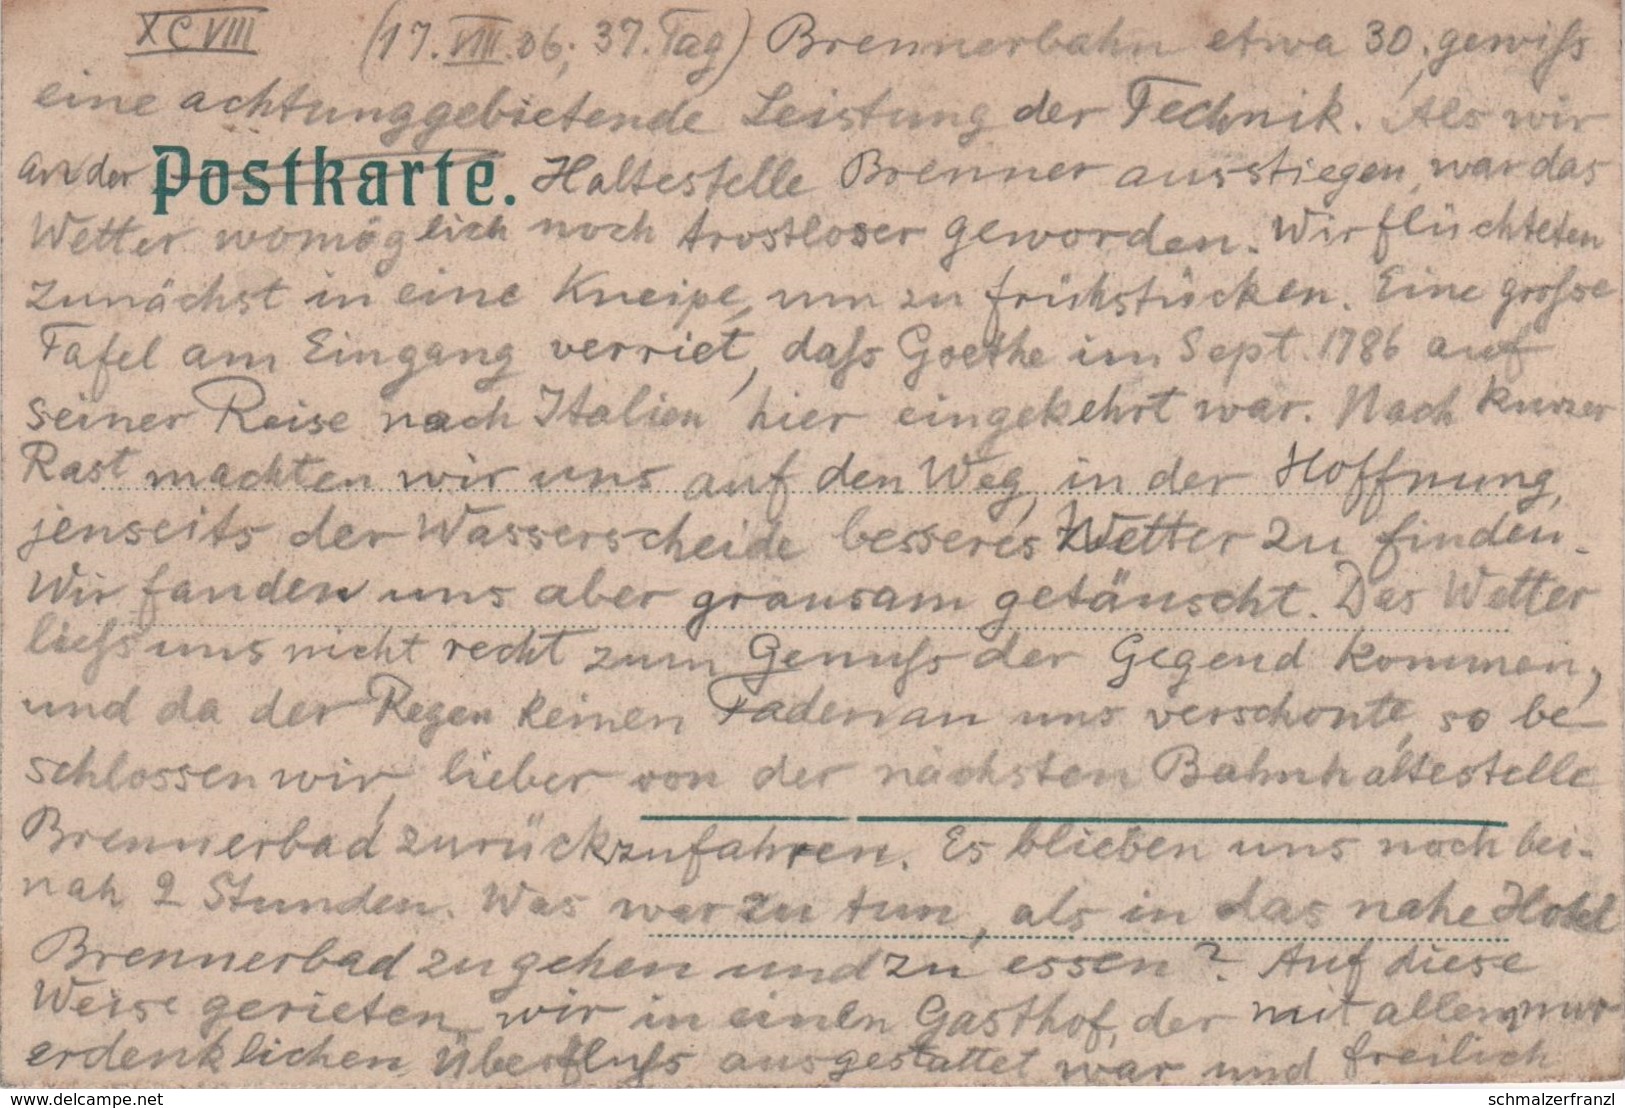 XCVIII (17. VIII. 06; 37. Tag) Brennerbahn etwa 30, gewiſs
eine achtunggebietende Leistung der Technik. Als wir
an der Postkarte. Haltestelle Brenner ausstiegen, war das
Wetter womöglich noch trostloser geworden. Wir flüchteten
zunächst in eine Kneipe, um zu frühstücken. Eine groſse
Tafel am Eingang verriet, daſs Goethe im Sept. 1786 auf
seiner Reise nach Italien hier eingekehrt war. Nach kurzer
Rast machten wir uns auf den Weg, in der Hoffnung,
jenseits der Wasserscheide besseres Wetter zu finden.
Wir fanden uns aber grausam getäuscht. Das Wetter
lieſs uns nicht recht zum Genuſs der Gegend kommen,
und da der Regen keinen Faden an uns verschonte, so be-
schlossen wir, lieber von der nächsten Bahnhaltestelle
Brennerbad zurückzufahren. Es blieben uns noch bei-
nah 2 Stunden. Was war zu tun, als in das nahe Hotel
Brennerbad zu gehen und zu essen? Auf diese
Weise gerieten wir in einen Gasthof, der mit allem nur
erdenklichen Überfluſs ausgestattet war und freilich
delcampe.net
schmalzerfranzl